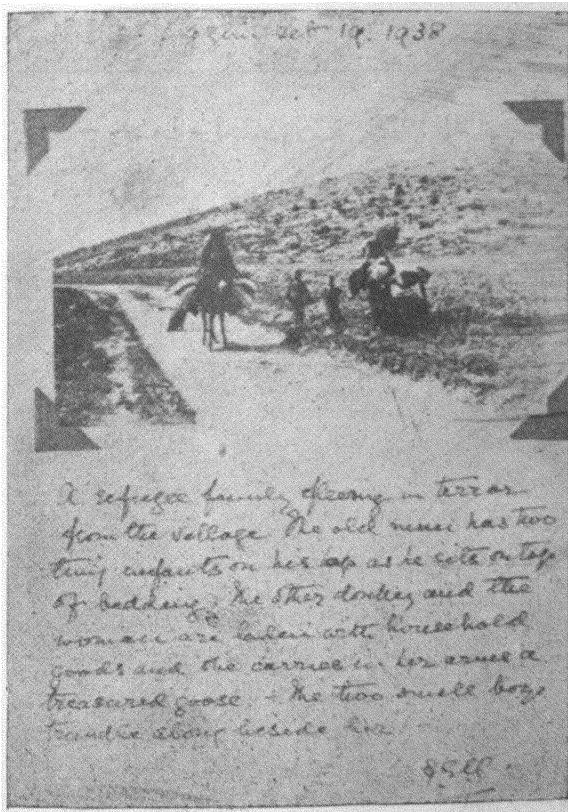 Oct 19. 1938
A refugee family fleeing in terror
from the village. The old man has two
tiny infants on his lap as he sits on top
of bedding. The other donkey and the
woman are laden with household
goods and she carries in her arms a
treasured goose. - The two small boys
trundle along beside her.